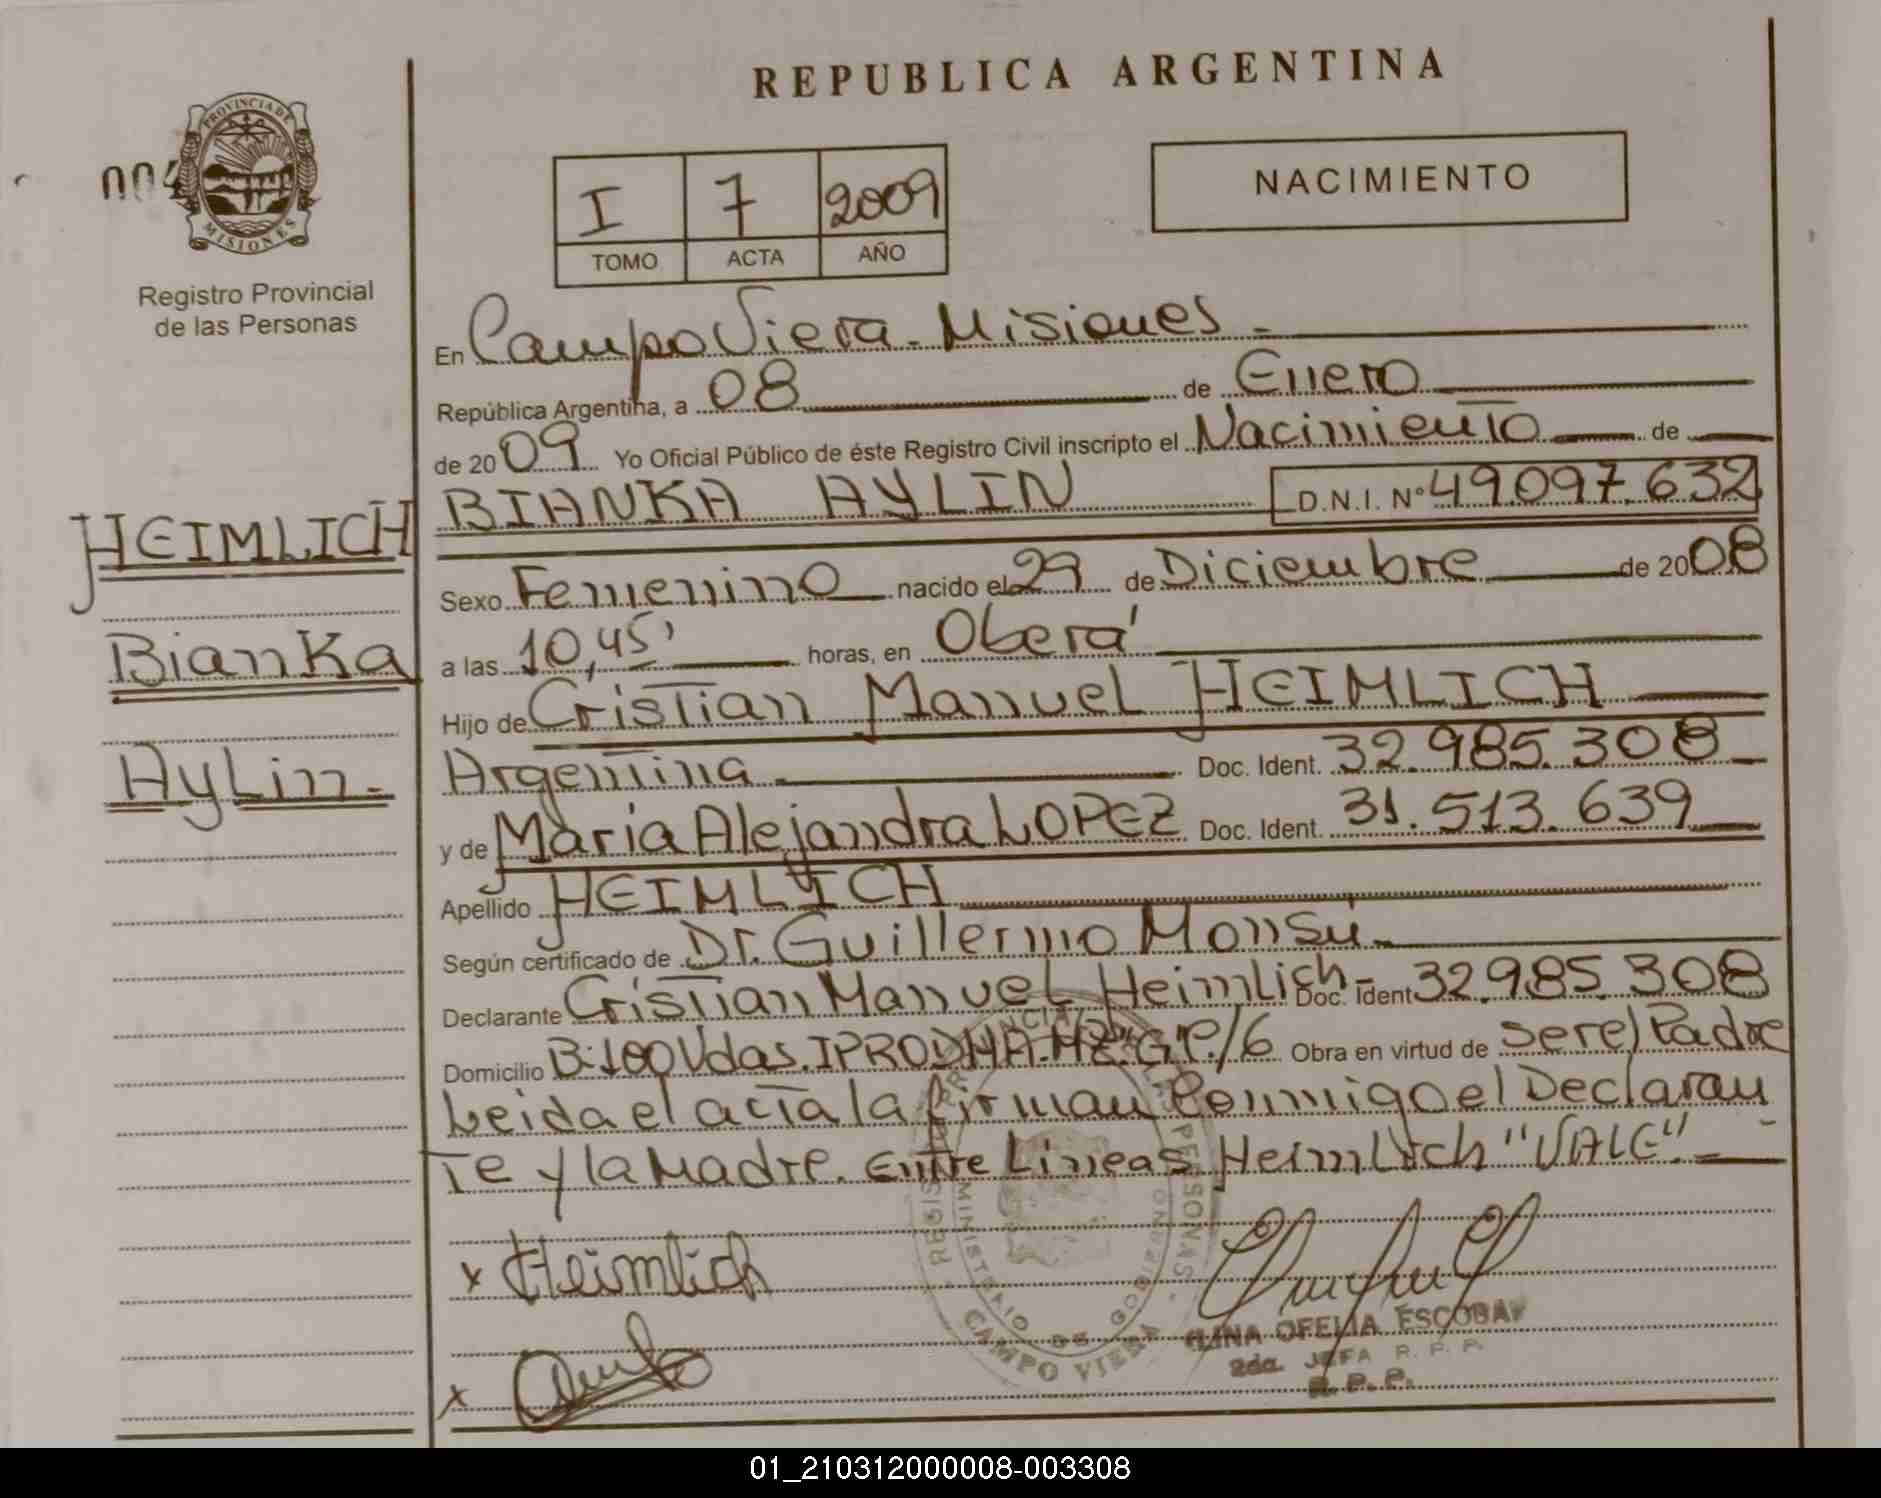 REPUBLICA ARGENTINA
PROVINCIA DE
MISIONES
004
Registro Provincial
de las Personas
I 7 2009
TOMO ACTA AÑO
NACIMIENTO
En Campo Viera - Misiones -
República Argentina, a 08 de Enero
de 2009 Yo Oficial Público de éste Registro Civil inscripto el Nacimiento de
BIANKA AYLIN D.N.I. Nº 49.097.632
HEIMLICH
Bianka
Aylin -
Sexo Femenino nacido el 29 de Diciembre de 2008
a las 10,45' horas, en Oberá
Hijo de Cristian Manuel HEIMLICH
Argentina - Doc. Ident. 32.985.308
y de María Alejandra LOPEZ Doc. Ident. 31.513.639
Apellido HEIMLICH
Según certificado de Dr. Guillermo Monsú -
Declarante Cristian Manuel Heimlich - Doc. Ident 32.985.308
Domicilio B: 100 Vdas. IPRODHA. MZ. "G" P./6 Obra en virtud de ser el Padre
Leida el acta la firman Conmigo el Declaran
te y la Madre. Entre Lineas Heimlich "VALE" -
x Heimlich
x
ESCOBAR
OFELIA
2da. JEFA R. P. P.
R. P. P.
CAMPO VIERA
MINISTERIO DE GOBIERNO
01_210312000008-003308